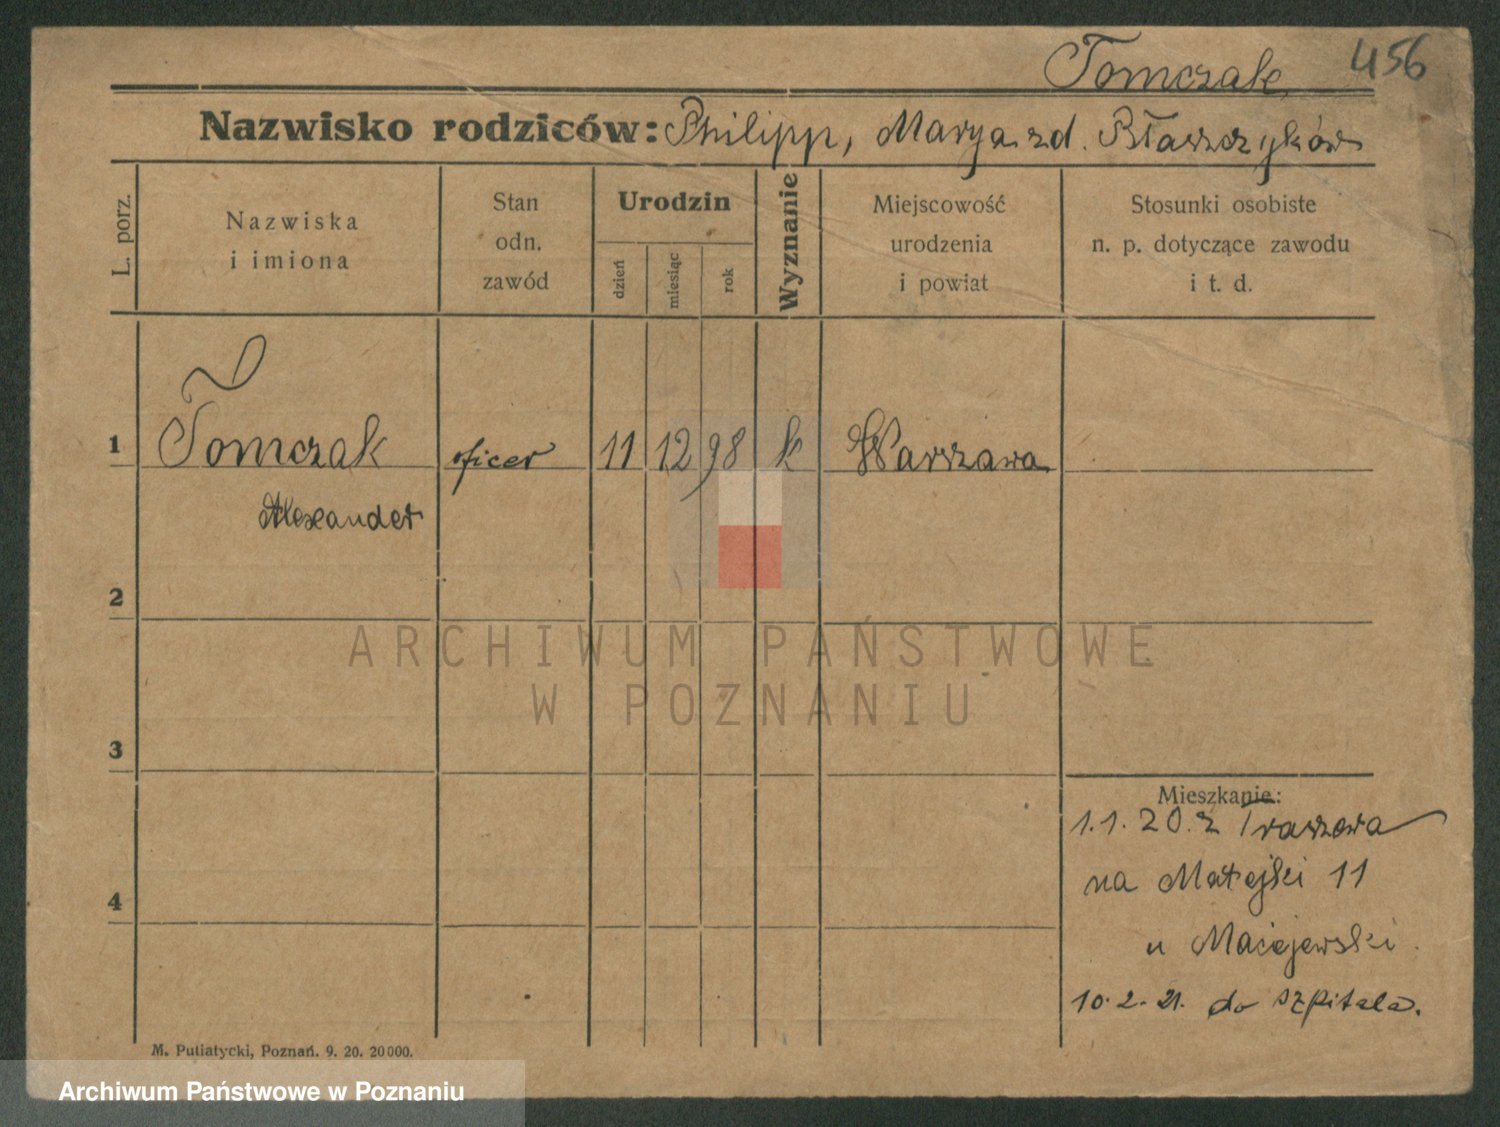 Tomczak 456
Nazwisko rodziców: Philipp, Marya zd. Błaszczyków
L. porz.
Nazwiska
i imiona
Stan
odn.
zawód
Urodzin
dzień
miesiąc
rok
Wyznanie
Miejscowość
urodzenia
i powiat
Stosunki osobiste
n. p. dotyczące zawodu
i t. d.
1 Tomczak oficer 11 12 98 k Warszawa
Alexander
2
3
4
Mieszkanie:
1.1.20. z
na Matejki 11
u Maciejewski.
10.2.21. do szpitala.
M. Putiatycki, Poznań. 9. 20. 20000.
ARCHIWUM PAŃSTWOWE
W POZNANIU
Archiwum Państwowe w Poznaniu